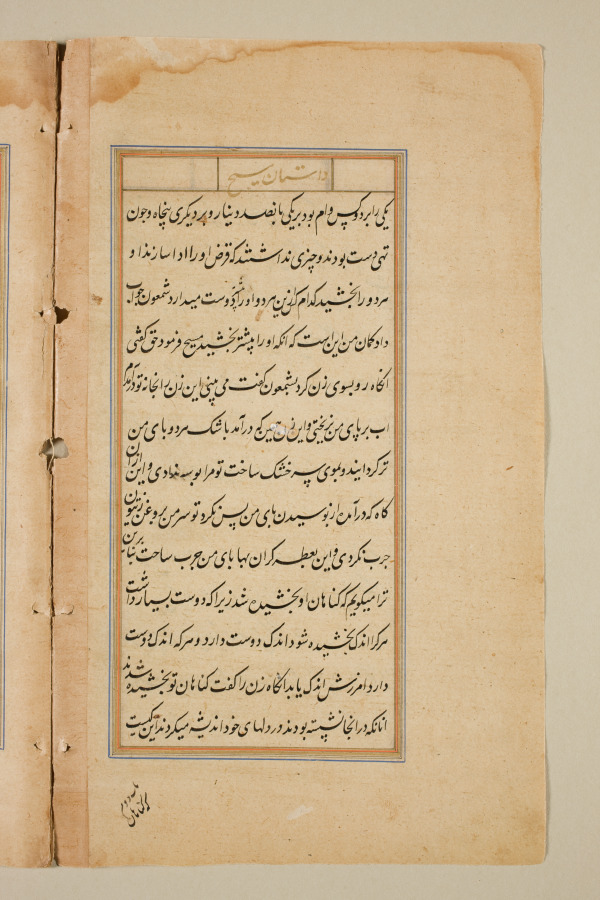 داستان مسیح
یکی را بر دو کس وام بود بر یکی پانصد دینار و بر دیگری پنجاه و چون
تهی دست بودند و چیزی نداشتند که قرض او را ادا سازند او
هر دو را بخشید کدام کس ازین هر دو او را دوست میدارد شمعون جواب
داد گمان من این است که انکه او را پیشتر بخشید مسیح فرمود حق گفتی
انگاه رو بسوی زن کرد بشمعون گفت می بینی این زن را بخانه تو درآمدم
اب بر پای من نریختی و این زن درآمد باشک هر دو پای من
تر گردانید و بموی سر خشک ساخت تو مرا بوسه ندادی و این ازان
گاه که درآمد از بوسیدن پای من پس نکرد تو سر من بروغن زیتون
چرب نکردی و این بعطر گران بها پای من چرب ساخت بنابرین
ترا میگویم که گناهان او بخشیده شد زیرا که دوست بسیار داشت
هر کرا اندک بخشیده شود اندک دوست دارد و هر که اندک دوست
دارد امرزش اندک یابد انگاه زن را گفت گناهان تو بخشیده شدند
انانکه در انجا نشسته بودند در دلهای خود اندیشه میکردند این کیست
که گناهان